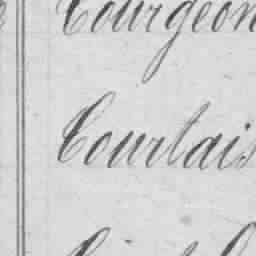 Tourgeon
Courtais